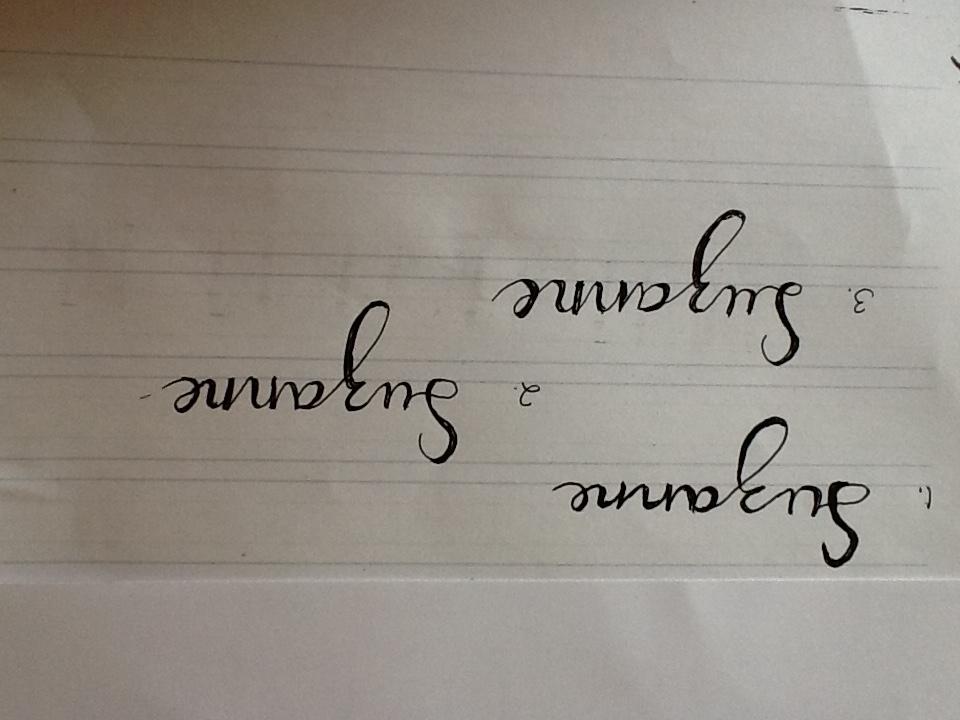 1. Suzanne
2. Suzanne
3. Suzanne